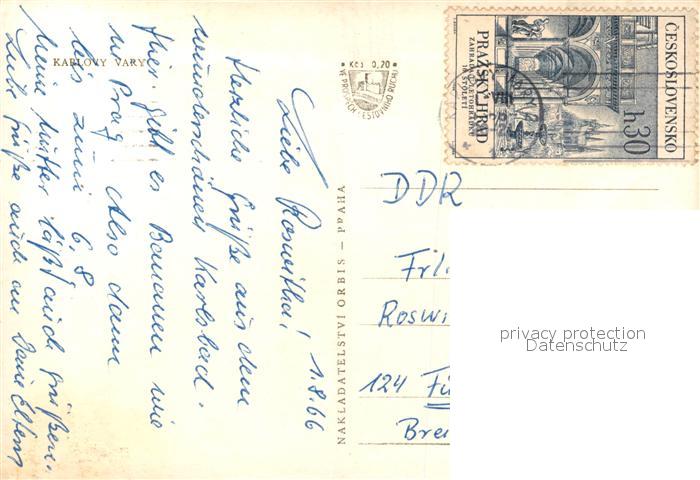 KARLOVY VARY
1.8.66
Liebe Roswitha!
Herzliche Grüße aus dem
wunderschönen Karlsbad.
Hier gibt es Bananen wie
in Prag. Also dann
bis zum 6.8
Meine Mutter läßt auch grüßen.
Grüße auch an Deine Eltern
NAKLADATELSTVÍ ORBIS — PRAHA
Kčs 0,20
VE PROSPĚCH CESTOVNÍHO RUCHU
ČESKOSLOVENSKO
h 30
PRAŽSKÝ HRAD
ZAHRADA LETOHRÁDKU
16. STOLETÍ
DDR
Frl.
Roswi
124 Fü
Bre
privacy protection
Datenschutz